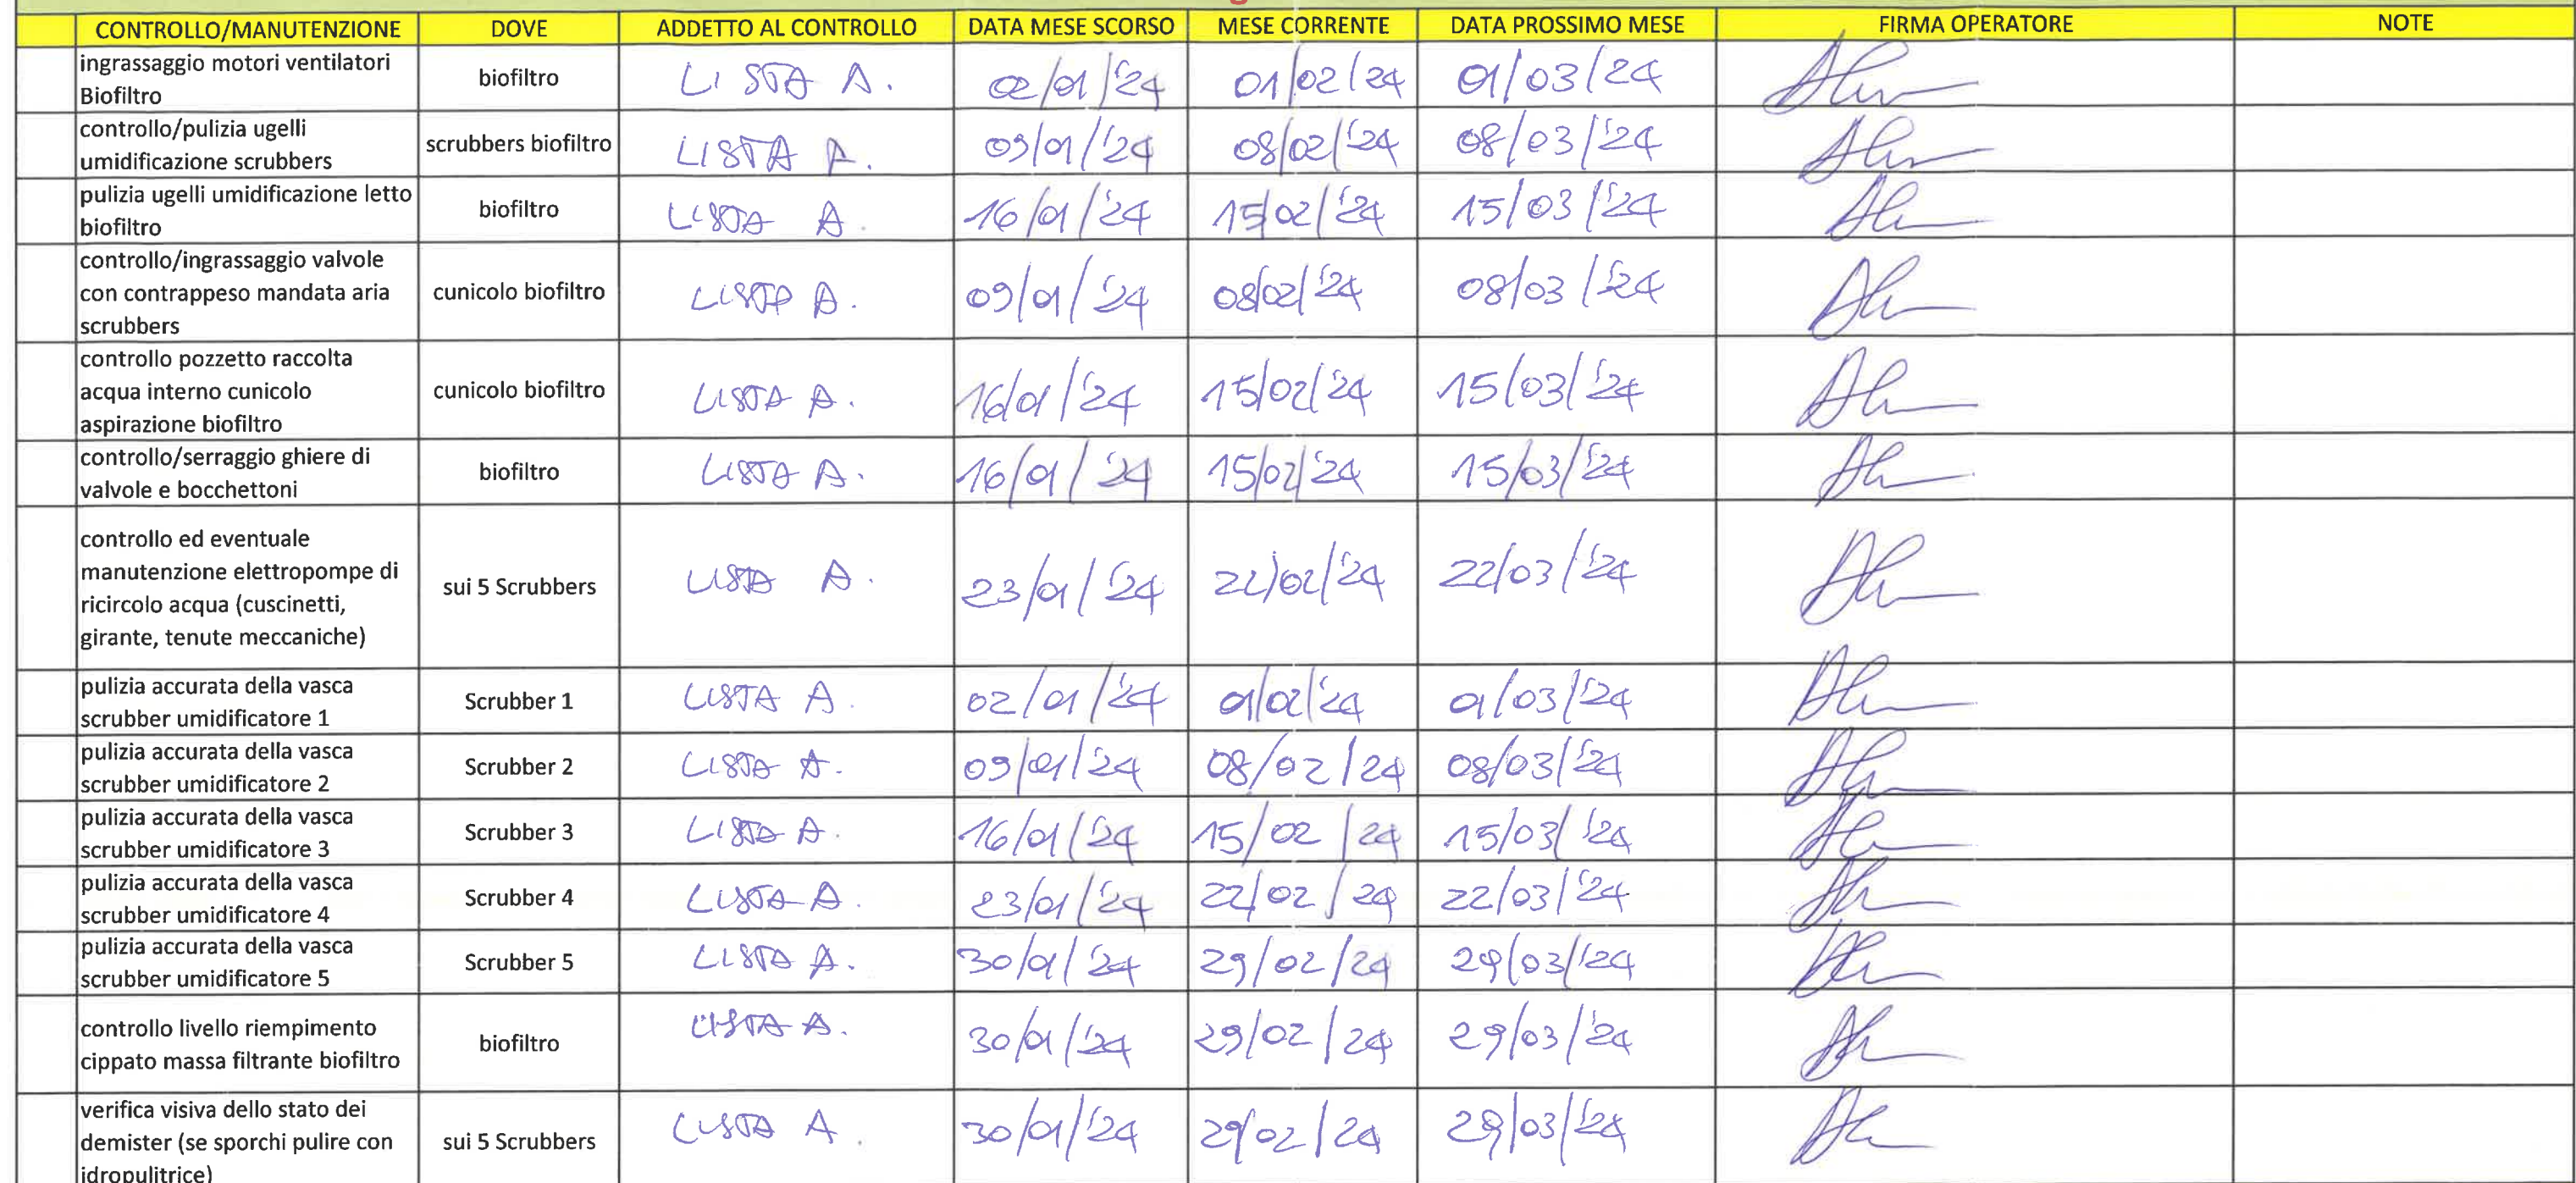 CONTROLLO/MANUTENZIONE DOVE ADDETTO AL CONTROLLO DATA MESE SCORSO MESE CORRENTE DATA PROSSIMO MESE FIRMA OPERATORE NOTE
ingrassaggio motori ventilatori
Biofiltro
biofiltro
LISTA A.
02/01/'24
01/02/24
01/03/24
controllo/pulizia ugelli
umidificazione scrubbers
scrubbers biofiltro
LISTA A.
09/01/'24
08/02/'24
08/03/'24
pulizia ugelli umidificazione letto
biofiltro
biofiltro
LISTA A.
16/01/'24
15/02/'24
15/03/'24
controllo/ingrassaggio valvole
con contrappeso mandata aria
scrubbers
cunicolo biofiltro
LISTA A.
09/01/'24
08/02/'24
08/03/'24
controllo pozzetto raccolta
acqua interno cunicolo
aspirazione biofiltro
cunicolo biofiltro
LISTA A.
16/01/'24
15/02/'24
15/03/'24
controllo/serraggio ghiere di
valvole e bocchettoni
biofiltro
LISTA A.
16/01/'24
15/02/'24
15/03/'24
controllo ed eventuale
manutenzione elettropompe di
ricircolo acqua (cuscinetti,
girante, tenute meccaniche)
sui 5 Scrubbers
LISTA A.
23/01/'24
22/02/'24
22/03/'24
pulizia accurata della vasca
scrubber umidificatore 1
Scrubber 1
LISTA A.
02/01/'24
01/02/'24
01/03/'24
pulizia accurata della vasca
scrubber umidificatore 2
Scrubber 2
LISTA A.
09/01/'24
08/02/24
08/03/'24
pulizia accurata della vasca
scrubber umidificatore 3
Scrubber 3
LISTA A.
16/01/'24
15/02/24
15/03/'24
pulizia accurata della vasca
scrubber umidificatore 4
Scrubber 4
LISTA A.
23/01/'24
22/02/24
22/03/'24
pulizia accurata della vasca
scrubber umidificatore 5
Scrubber 5
LISTA A.
30/01/'24
29/02/24
29/03/'24
controllo livello riempimento
cippato massa filtrante biofiltro
biofiltro
LISTA A.
30/01/'24
29/02/24
29/03/'24
verifica visiva dello stato dei
demister (se sporchi pulire con
idropulitrice)
sui 5 Scrubbers
LISTA A.
30/01/'24
29/02/24
29/03/'24